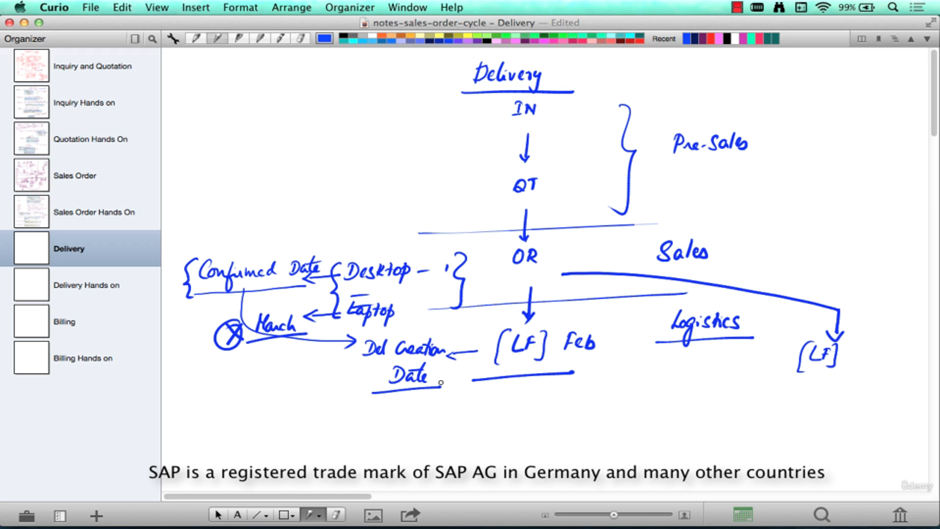 Curio File Edit View Insert Format Arrange Organizer Window Help 99%
notes-sales-order-cycle – Delivery — Edited
Organizer
Recent
Inquiry and Quotation
Inquiry Hands on
Quotation Hands On
Sales Order
Sales Order Hands On
Delivery
Delivery Hands on
Billing
Billing Hands on
Delivery
IN
Pre-Sales
QT
OR
Sales
Confirmed Date
Desktop - 1
Laptop
March
Logistics
Del Creation
Date
[LF] Feb
[LF]
SAP is a registered trade mark of SAP AG in Germany and many other countries
Udemy
A